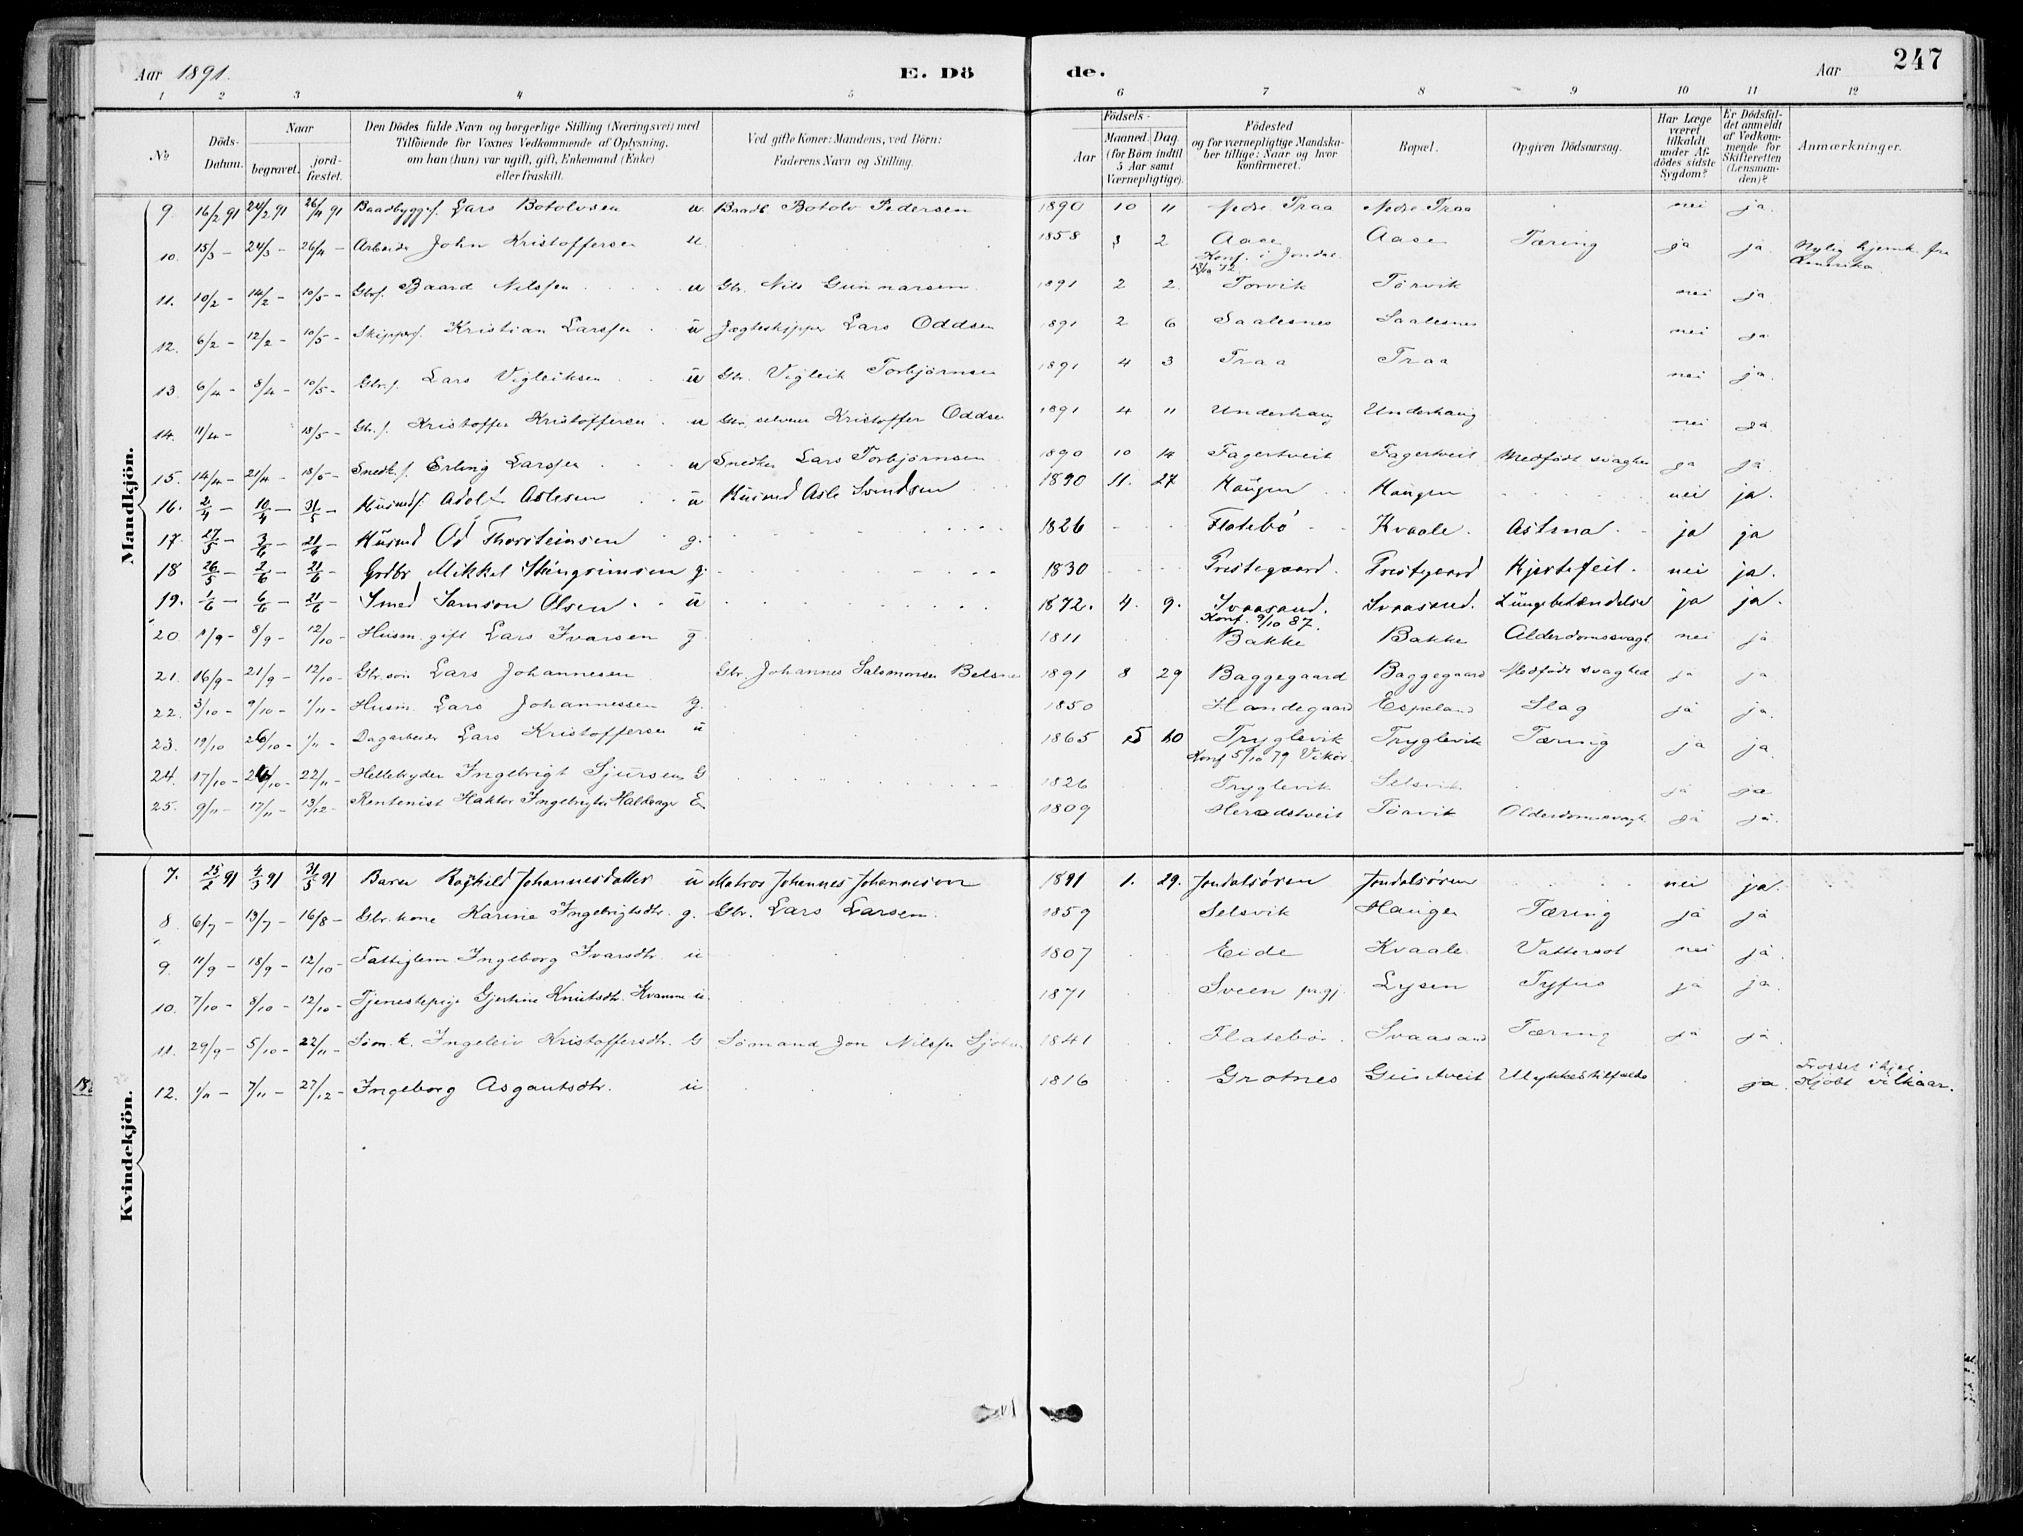 Aar 1891. E. Döde. Aar 247
1 2 3 4 5 6 7 8 9 10 11 12
№ Döds-Datum. Naar begravet. jordfæstet. Den Dödes fulde Navn og borgerlige Stilling (Næringsvei) med Tilföiende for Voxnes Vedkommende af Oplysning, om han (hun) var ugift, gift, Enkemand (Enke) eller fraskilt. Ved gifte Koner: Mandens, ved Börn: Faderens Navn og Stilling. Födsels- Aar Maaned. Dag. (for Börn indtil 5 Aar samt Værnepligtige). Födested og for værnepligtige Mandskaber tillige: Naar og hvor konfirmeret. Bopæl. Opgiven Dödsaarsag. Har Læge været tilkaldt under Afdödes sidste Sygdom? Er Dödsfaldet anmeldt af Vedkommende for Skifteretten (Lensmanden)? Anmærkninger.
Mandkjön.
9. 16/2 91 24/2 91 26/4 91 Baadbyggers. Lars Botolvsen u Baadb. Botolv Pedersen 1890 10 11 Nedre Traa Nedre Traa nei ja.
10. 15/3 - 24/3 - 26/4 - Arbeider John Kristoffersen u. 1858 3 2 Aase Aase Tæring ja ja. Nylig hjemk. fra
Konf. i Jondal Amerika.
11. 10/2 - 14/2 - 10/5 - Gbrs. Baard Nilssen u Gbr. Nils Gunnarsen 1891 2 2 Torvik Törvik nei ja.
12. 6/2 - 12/2 - 10/5 - Skippers. Kristian Larssen u Jægteskipper Lars Oddsen 1891 2 6 Saalesnes Saalesnes nei ja.
13. 6/4 - 8/4 - 10/5 - Gbr.s. Lars Vigleiksen u Gbr. Vigleik Torbjørnsen 1891 4 3 Traa Traa nei ja.
14. 11/4 - 18/5 - Gbr.s. Kristoffer Kristoffersen u Gbr. selveier Kristoffer Oddsen 1891 4 11 Underhaug Underhaug nei ja.
15. 14/4 - 21/4 - 18/5 - Snedk.s. Erling Larssen u Snedker Lars Torbjørnsen 1890 10 14 Fagertveit Fagertveit Medfödt svaghed ja ja.
16. 2/4 - 10/4 - 31/5 - Husmds. Adolf Aslesen u Husmd Asle Svendsen 1890 11. 27 Haugen Haugen nei ja.
17. 27/5 - 3/6 - 21/6 - Husmd Od Thorsteinsen g. 1826 Flatebö Kvaale. Astma ja ja
18 26/5 - 2/6 - 21/6 - Grdbr. Mikkel Steingrimsen g. 1830 Prestegaard. Prestegaard Hjertefeil. nei ja.
19. 1/6 - 6/6 - 21/6 - Smed Samson Olsen. u 1872. 4. 9. Svaasand. Svaasand. Lungebetændelse ja ja.
Konf. 9/10 87.
20 1/9 - 8/9 - 12/10 - Husm. gift Lars Ivarsen g 1811 Bakke Bakke Alderdomssvagh nei ja
21. 16/9 - 21/9 - 12/10 - Gbr. sön Lars Johannesen Gbr. Johannes Salomonsen Belsnes 1891 8 29 Baggegaard Baggegaard Medfödt svaghed ja ja
22. 3/10 - 9/10 - 1/11 - Husm. Lars Johannessen g. 1850 Handegaard Espeland Slag ja ja.
23. 19/10 26/10 - 1/11 - Dagarbeider Lars Kristoffersen u 1865 5 10 Tryglevik Tryglevik Tæring ja ja
Konf 5/10 79 Vikör
24. 17/10 - 24/10 - 22/11 - Hellebryder Ingebrigt Sjursen G 1826 Tryglevik Selsvik ja ja
25. 9/11 - 17/11 - 13/12 - Rentenist Haktor Ingebrigtsen E 1809 Heradstveit Törvik Alderdomssvagh ja ja.
Kvindekjön.
7. 25/2 91 4/3 91 31/5 91 Barn Ragnhild Johannesdatter u Matros Johannes Johannesson 1891 1. 29. Jondalsören Jondalsören nei ja.
8 6/7 - 13/7 - 16/8 - Gbr. kone Karina Ingebrigtsdtr. g. Gbr. Lars Larsen. 1859 Selsvik Haugen Tæring ja ja
9. 11/9 - 18/9 - 12/10 - Fattiglem Ingeborg Ivarsdtr. u 1807 Eide Kvaale Vattersot nei ja.
10. 7/10 - 8/10 - 12/10 - Tjenestepige Gjertine Knutsdtr. Kvamme u 1871 Sveen Lysen Tyfus ja ja.
11. 29/9 - 5/10 - 22/11 - Söm. k. Ingeleiv Kristoffersdtr. G Sömand Jon Nilssen 1841 Flatebö Svaasand Tæring ja ja.
12. 1/11 - 7/11 - 27/12 - Ingeborg Asgautsdtr. u 1816 Grotnes Guntveit Ulykkestilfælde ja.
Kjöbt vilkaar.